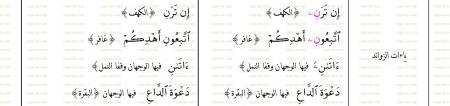 ياءات الزوائد
إِن تَرَنِۦ ﴿الكهف﴾ إِن تَرَنِ ﴿الكهف﴾
ٱتَّبِعُونِۦ أَهۡدِكُمۡ ﴿غافر﴾ ٱتَّبِعُونِ أَهۡدِكُمۡ ﴿غافر﴾
ءَاتَىٰنِۦَ فيها الوجهان وقفا النمل﴾ ءَاتَىٰنِ فيها الوجهان وقفا النمل﴾
دَعۡوَةَ ٱلدَّاعِ فيها الوجهان ﴿البقرة﴾ دَعۡوَةَ ٱلدَّاعِ فيها الوجهان ﴿البقرة﴾